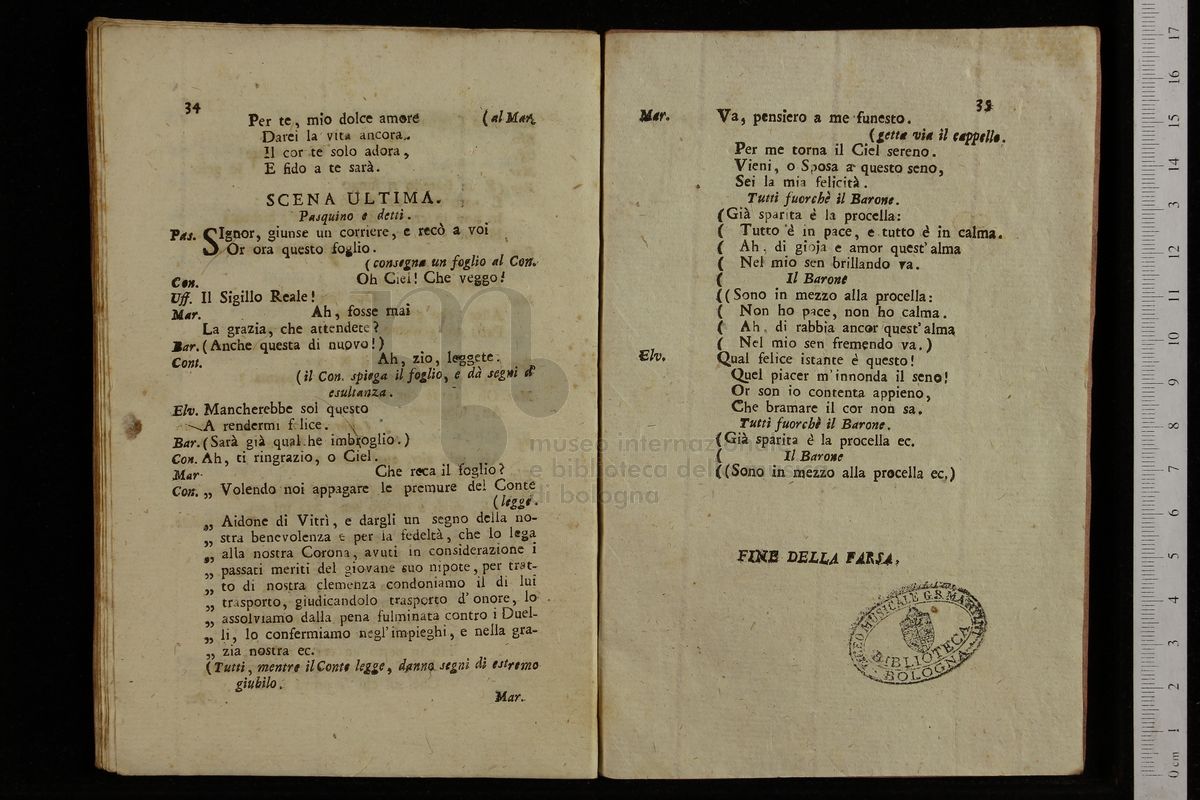 34
Per te, mio dolce amore (al Mar.
Darei la vita ancora.
Il cor te solo adora,
E fido a te sarà.
SCENA ULTIMA.
Pasquino e detti.
Pas. SIgnor, giunse un corriere, e recò a voi
Or ora questo foglio.
(consegna un foglio al Con.
Con. Oh Ciel! Che veggo!
Uff. Il Sigillo Reale!
Mar. Ah, fosse mai
La grazia, che attendete?
Bar. (Anche questa di nuovo!)
Cont. Ah, zio, leggete.
(il Con. spiega il foglio, e dà segni d'
esultanza.
Elv. Mancherebbe sol questo
A rendermi felice.
Bar. (Sarà già qualche imbroglio.)
Con. Ah, ti ringrazio, o Ciel.
Mar. Che reca il foglio?
Con. „ Volendo noi appagare le premure del Conte
(legge.
„ Aidone di Vitrì, e dargli un segno della no-
„ stra benevolenza e per la fedeltà, che lo lega
„ alla nostra Corona, avuti in considerazione i
„ passati meriti del giovane suo nipote, per trat-
„ to di nostra clemenza condoniamo il di lui
„ trasporto, giudicandolo trasporto d'onore, lo
„ assolviamo dalla pena fulminata contro i Duel-
„ li, lo confermiamo negl'impieghi, e nella gra-
„ zia nostra ec.
(Tutti, mentre il Conte legge, danno segni di estremo
giubilo.
Mar.
35
Mar. Va, pensiero a me funesto.
(getta via il cappello.
Per me torna il Ciel sereno.
Vieni, o Sposa a questo seno,
Sei la mia felicità.
Tutti fuorchè il Barone.
(Già sparita è la procella:
( Tutto è in pace, e tutto è in calma.
( Ah, di gioja e amor quest'alma
( Nel mio sen brillando va.
( Il Barone
((Sono in mezzo alla procella:
( Non ho pace, non ho calma.
( Ah, di rabbia ancor quest'alma
( Nel mio sen fremendo va.)
Elv. Qual felice istante è questo!
Quel piacer m'innonda il seno!
Or son io contenta appieno,
Che bramare il cor non sa.
Tutti fuorchè il Barone.
(Già sparita è la procella ec.
( Il Barone
((Sono in mezzo alla procella ec.)
FINE DELLA FARSA.
LICEO MUSICALE G.B. MARTINI
BIBLIOTECA
BOLOGNA
museo internazionale
e biblioteca della musica
di bologna
0 cm 1 2 3 4 5 6 7 8 9 10 11 12 13 14 15 16 17